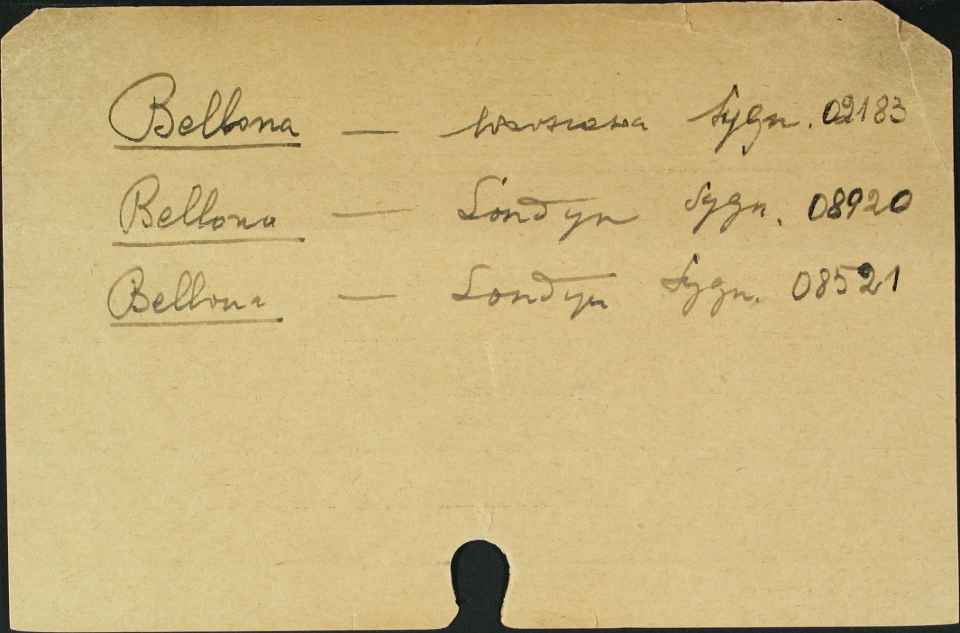 Bellona — Warszawa Sygn. 02183
Bellona — Londyn Sygn. 08920
Bellona — Londyn Sygn. 08521